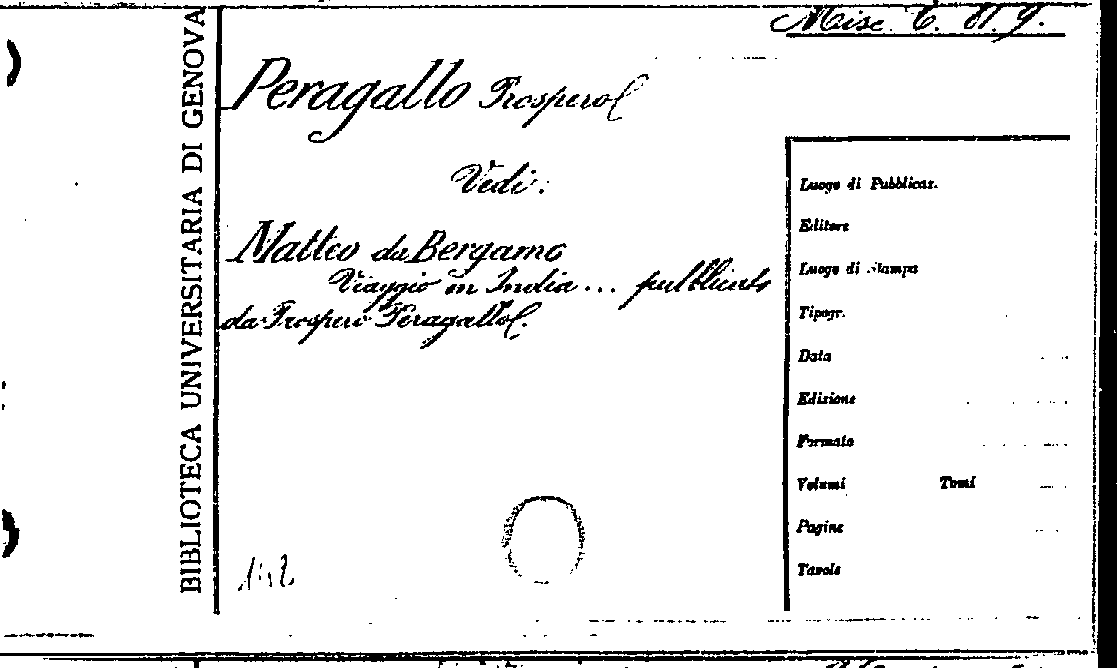 Misc. C. 81. 9.
BIBLIOTECA UNIVERSITARIA DI GENOVA
Peragallo Prospero
Vedi:
Matteo da Bergamo
Viaggio in India... pubblicato
da Prospero Peragallo.
Luogo di Pubblicaz.
Editore
Luogo di Stampa
Tipogr.
Data
Edizione
Formato
Volumi Tomi
Pagine
Tavole